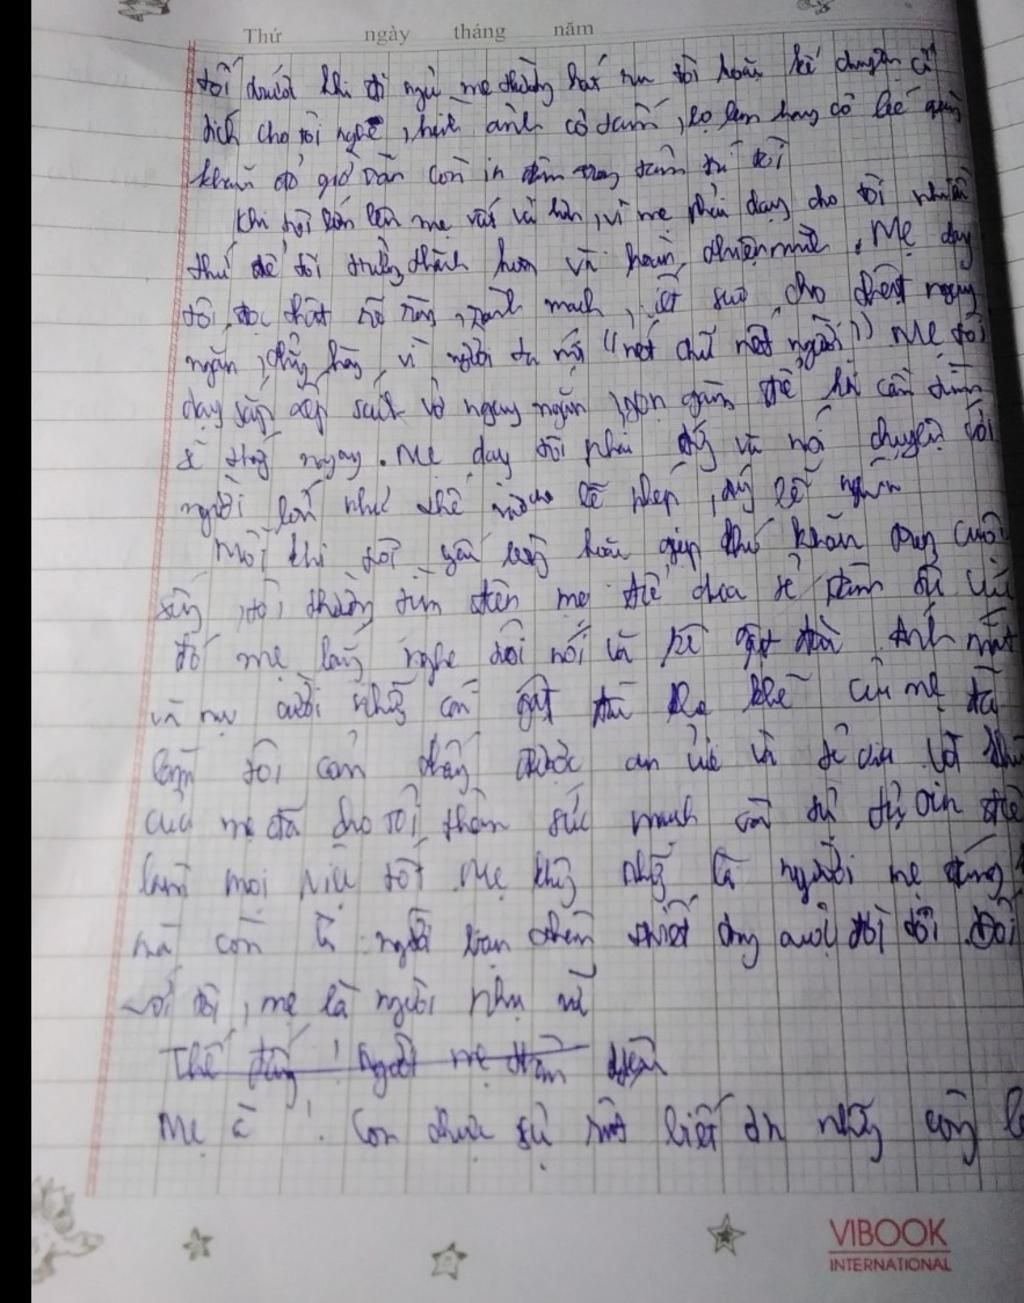 Thứ ngày tháng năm
tối trước khi đi ngủ mẹ thường hát ru tôi hoặc kể chuyện cổ
tích cho tôi nghe, hình ảnh cô tấm, lọ lem hay cô bé quàng
khăn đỏ giờ vẫn còn in đậm trong tâm trí tôi
Khi tôi lớn lên mẹ vất vả hơn, vì mẹ phải dạy cho tôi nhiều
thứ để tôi trưởng thành hơn và hoàn thiện mình. Mẹ dạy
tôi đọc thật rõ ràng, rành mạch, cho thật ngay
ngắn, thẳng hàng, vì người ta nói "nét chữ nét người" Mẹ tôi
dạy sắp xếp sách vở ngay ngắn, gọn gàng để khi cần dùng
ngay. Mẹ dạy tôi phải và nói chuyện với
người lớn như thế nào cho lễ phép,
Mỗi khi tôi gặp khó khăn trong cuộc
sống, tôi thường tìm đến mẹ để chia sẻ tâm sự
đó mẹ lắng nghe tôi nói và gật đầu. Ánh mắt
và nụ cười những cái gật đầu khe khẽ của mẹ đã
làm tôi cảm thấy được an ủi và
của mẹ đã cho tôi thêm sức mạnh và sự tự tin để
làm mọi việc tốt. Mẹ không những là người mẹ
mà còn là người bạn thân thiết trong cuộc đời tôi. Đối
với tôi, mẹ là người
Thế đấy! Người mẹ
Mẹ à! Con thực sự rất biết ơn những công
VIBOOK
INTERNATIONAL